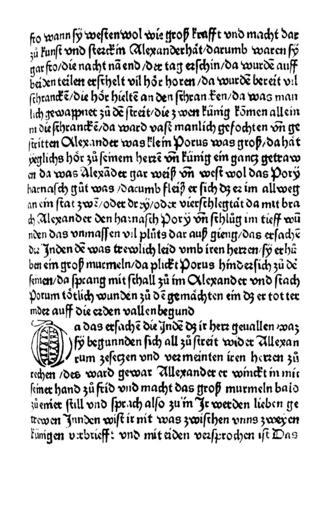 fro wann sÿ westen wol wie groß krafft vnd macht dar
zů kunst vnd sterck in Alexander hăt/darumb waren sÿ
gar fro/die nacht nā end/der tag erschin/da wurdē auff
beiden teilen erschelt vil hör horen/da wurdē bereit vil
schranckē/die hör hieltē an den schrancken/da was man
lich gewapnet zů dē streit/die zwen künig kōmen allein
in die schranckē/da ward vast manlich gefochten vn̄ ge
stritten Alexander was klein Porus was groß/da hăt
yeglichs hör zů seinem herrē vn̄ künig ein gantz getraw
en da was Alexāder gar weiß vn̄ west wol das Porÿ
harnasch gůt was/darumb fleiß er sich dz er im allweg
an ein stat zwē/oder drÿ/oder vierschleg tät da mit brach
Alexander den harnasch Porÿ vn̄ schlůg im tieff wū
nden das vnmassen vil plůts dar auß gieng/das ersachē
die Inden dē was trewlich leid vmb iren herren/sÿ erhů
ben ein groß murmeln/da plickt Porus hindersich zů dē
seinen/da sprang mit schall zů im Alexander vnd stach
Porum tötlich wunden zů dē gemächten ein dz er tot ter
nider auff die erden vallen begund
Da das ersachē die Indē dz ir herz gevallen waz
sÿ begunnden sich all zů streit wider Alexan
drum zesetzen vnd vermeinten iren herren zů
rechen/des ward gewar Allexander er winckt in mit
seiner hand zů frid vnd macht das groß murmeln bald
zů einer still vnd sprach also zů in Ir werden lieben ge
trewen Innden wist ir nit was zwischen vnns zweyen
künigen verbrieft vnd mit eiden versprochen ist Das